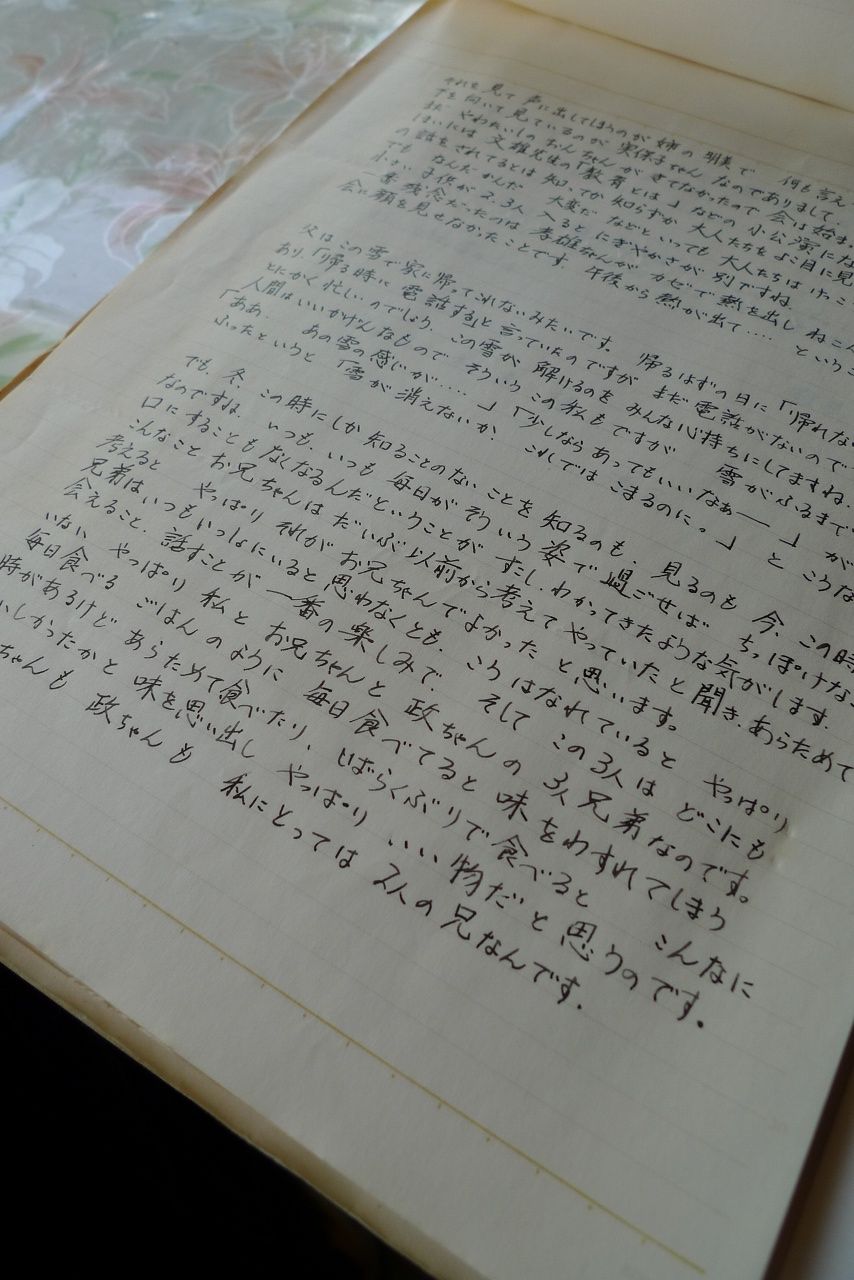 それを見て 声に出してしまうのが 姉の 明美で 何も言え
下を向いて見ているのが 実保子ちゃん なのでありまして、
まだ やわたいしの おんちゃんが きてなかったので 会は始ま
ばいには 文雄先生の「教育とは」などの 小公演にな
の話をされてるとは 知ってか 知らずか 大人たちを よこ目に見
でも なんだかんだ 大変だ などといっても 大人たちは けっこ
小さい子供が 2、3人 入ると にぎやかさが 別ですね。
一番残念だったのは 孝雄ちゃんが カゼで 熱を出し ねこん
会に顔を見せなかったことです。午後から熱が出て…… というこ
父はこの雪で家に帰ってこれないみたいです。帰るはずの日に「帰れな
あり、「帰る時に 電話する」と 言っていたのですが まだ 電話がないので
とにかく忙しいのでしょう。この雪が 解けるのを みんな心持ちにしてますね。
人間はいいかげんなもので そういう この私もですが 雪がふるまで
「ああ、あの雪の感じが……」「少しならあってもいいなぁ――」が
ふったというと 「雪が 消えないか、これでは こまるのに。」と こうな
でも、冬、この時にしか 知ることのないことを 知るのも、見るのも 今、この時
なのですね。いつも、いつも 毎日が そういう 姿で 過ごせば ちっぽけな
口にすることもなくなるんだ ということが すこし、わかってきたような気がします。
こんなこと お兄ちゃんは だいぶ 以前から 考えて やっていた と聞き、あらためて
考えると やっぱり それが お兄ちゃんで よかった と思います。
兄弟は いつもいっしょにいると 思わなくとも、こう はなれていると やっぱり
会えること、話すことが 一番の 楽しみで、そして この3人は どこにも
いない やっぱり 私と お兄ちゃんと 政ちゃんの 3人兄弟なのです。
毎日食べる ごはんのように 毎日 食べてると 味をわすれてしまう
時があるけど あらためて食べたり、しばらくぶりで 食べると こんなに
いしかったかと 味を思い出し やっぱり いい物だと 思うのです。
ちゃんも 政ちゃんも 私にとっては 2人の 兄なんです.